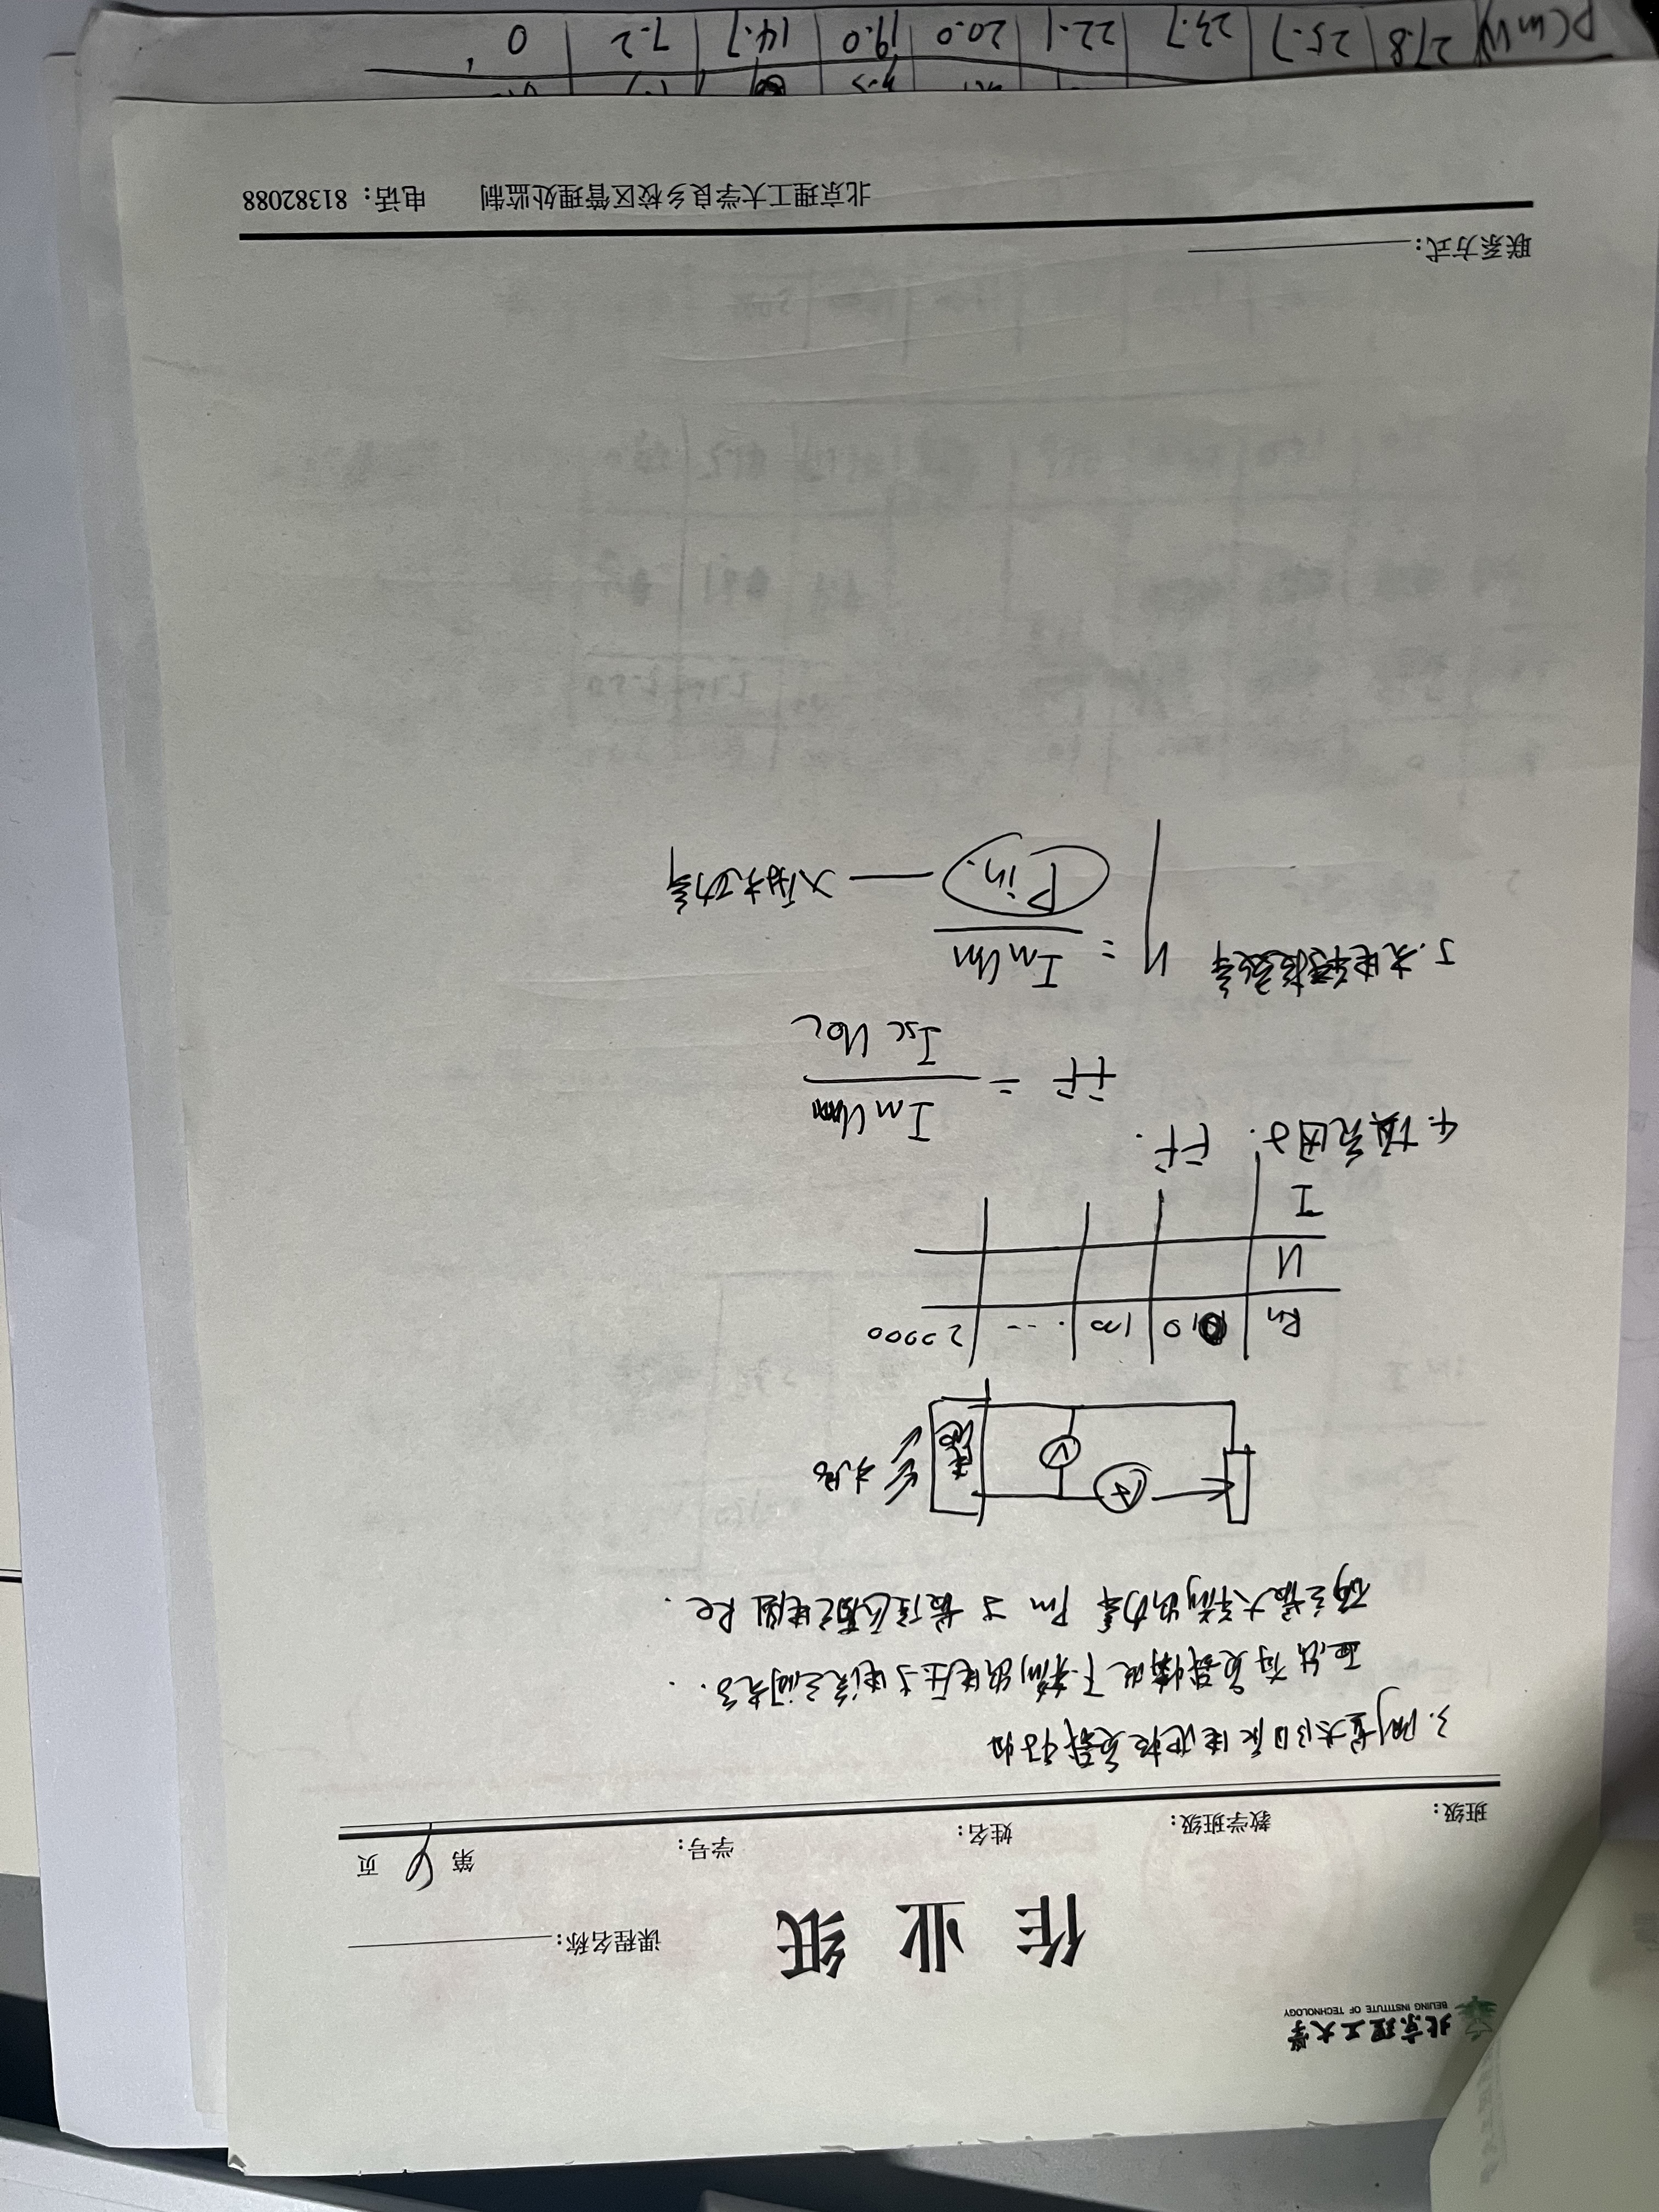 北京理工大学
BEIJING INSTITUTE OF TECHNOLOGY
作业纸
课程名称:
班级: 教学班级: 姓名: 学号: 第4页
3. 测量太阳能电池板负载特性
画出有负载情况下.输出电压与电流之间关系..
确定最大输出功率 Pm 与最佳匹配电阻 Re.
A
V
电池
光源
Rn 0 100 . -- 20000
U
I
4. 填充因子. FF.
FF = Im Um / Isc Uoc
5. 光电转换效率 η = Im Um / Pin. — 入射光功率
联系方式:
北京理工大学良乡校区管理处监制 电话: 81382088
P(mW) 27.8 25.7 23.7 22.1 20.0 19.0 14.7 7.2 0